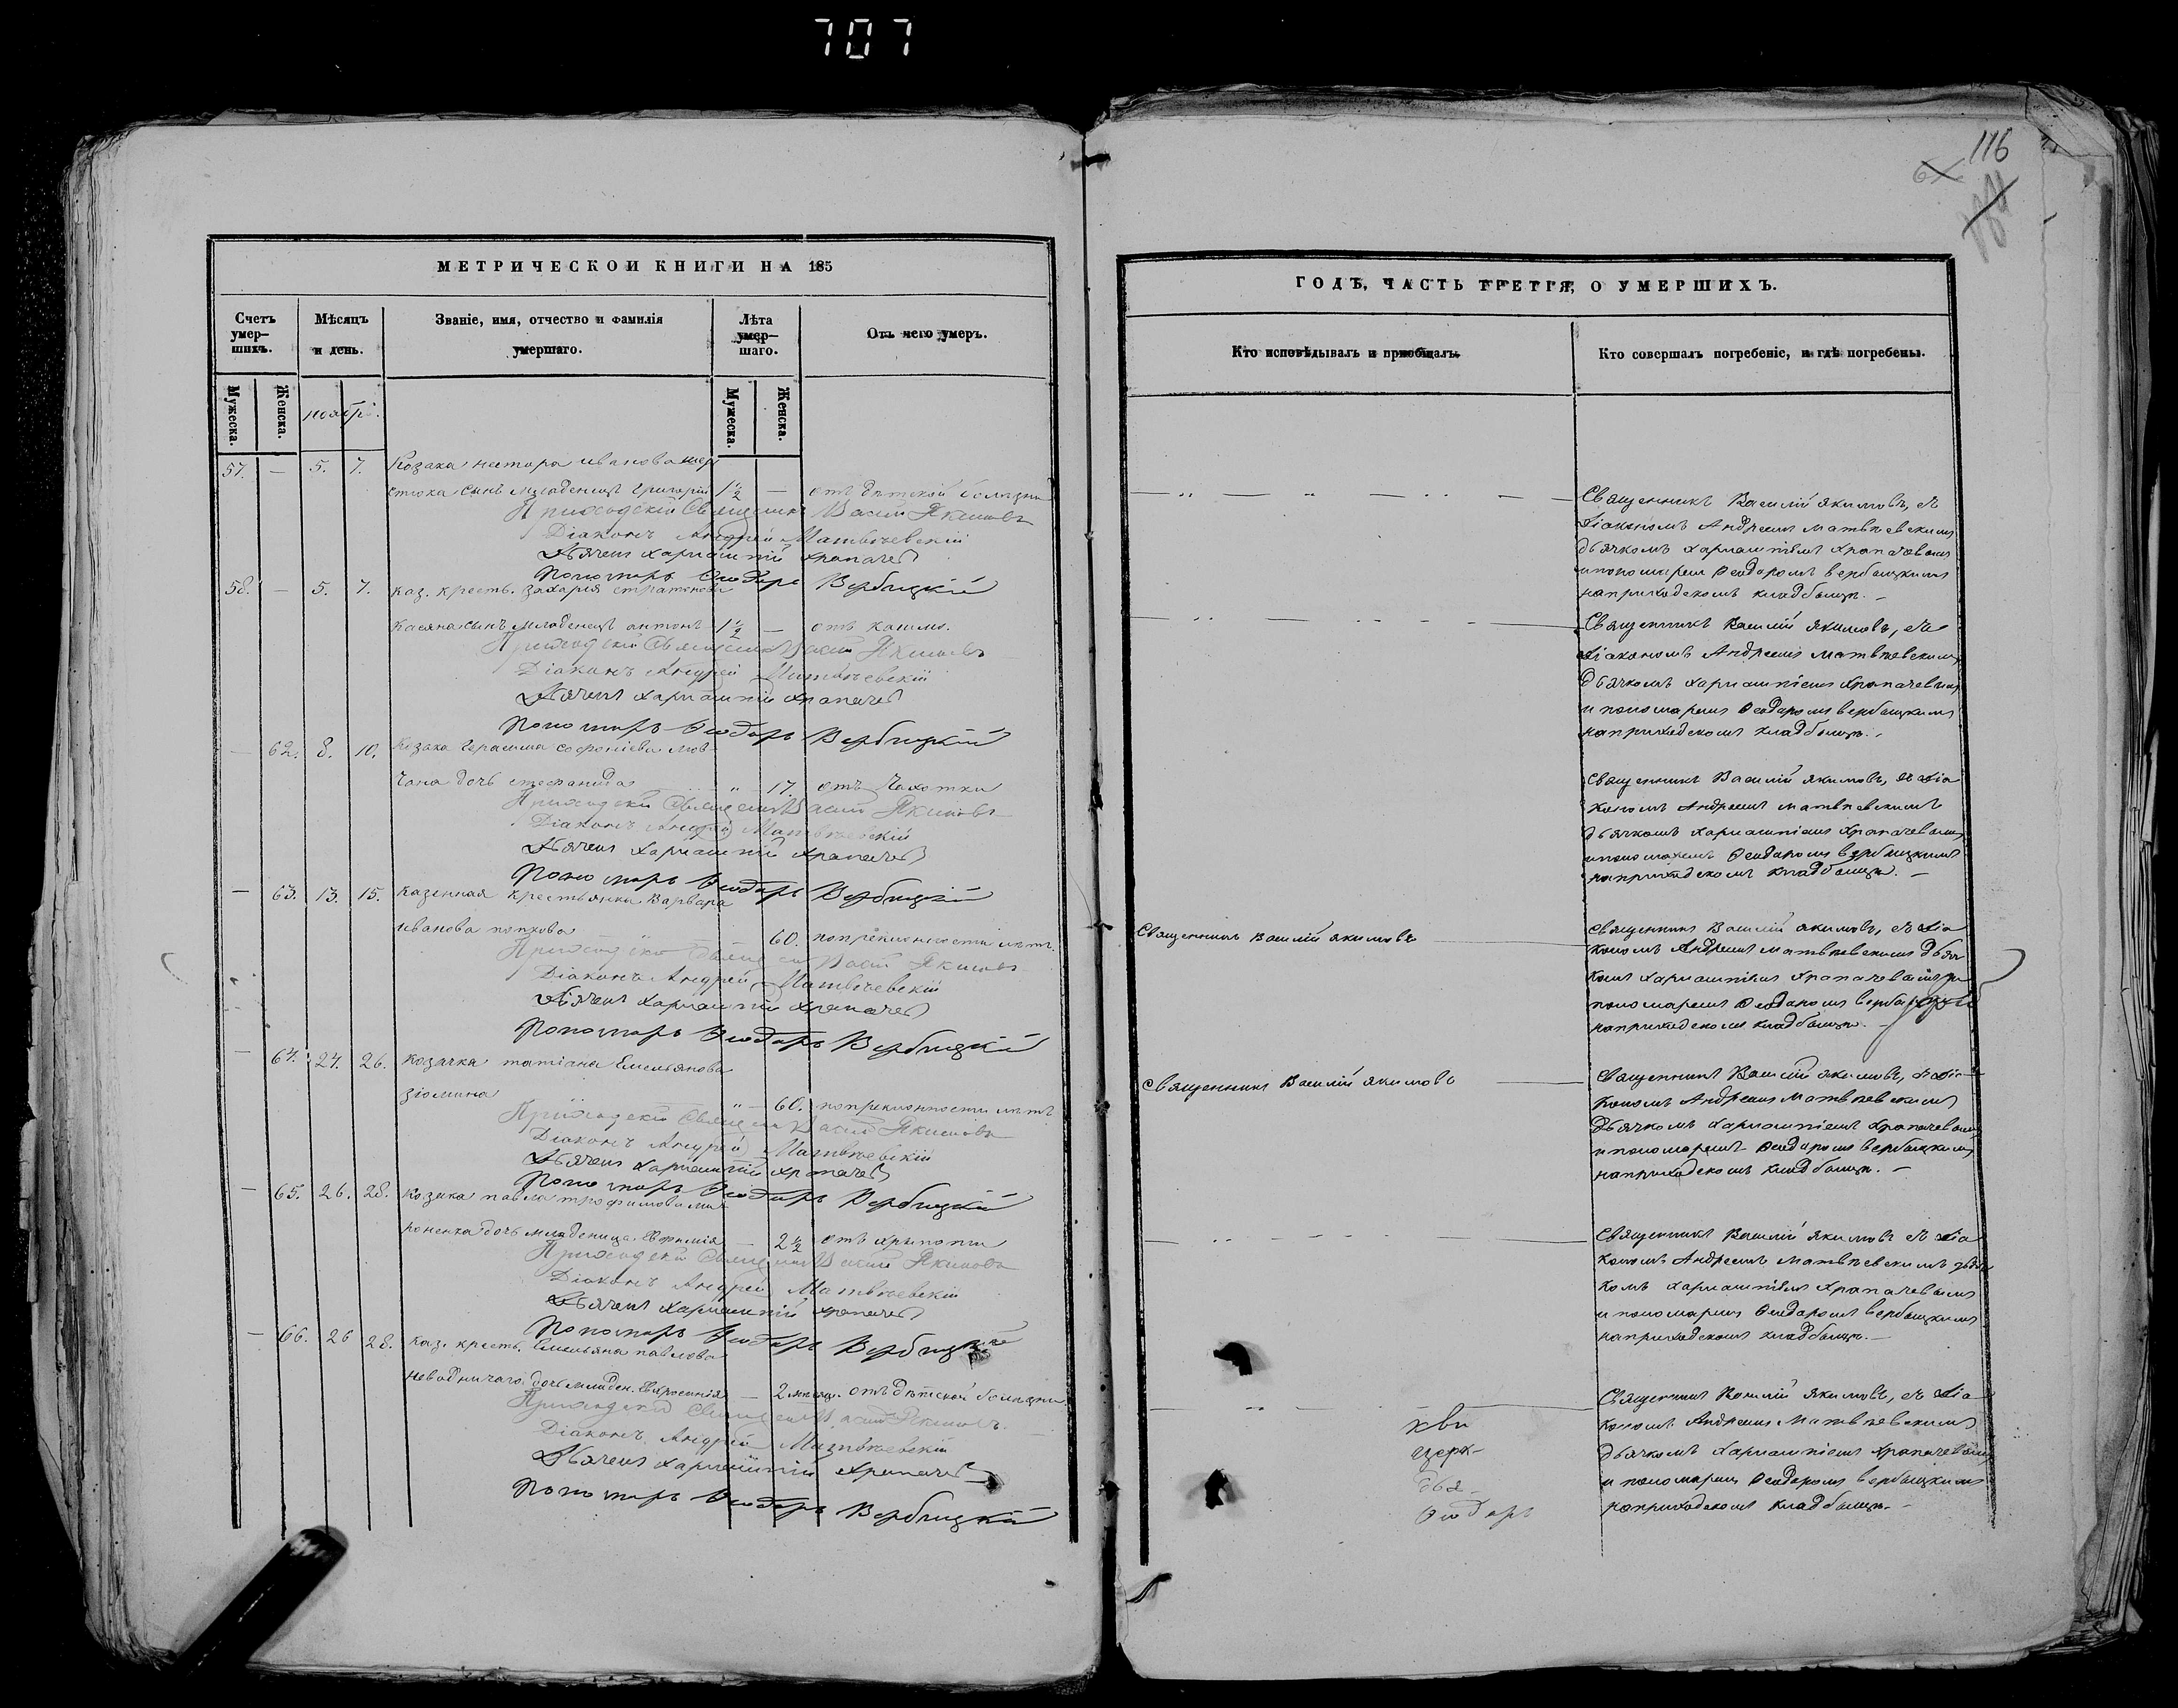 707
116
МЕТРИЧЕСКОЙ КНИГИ НА 185
Счетъ умер-шихъ.
Мѣсяцъ и день.
Званіе, имя, отчество и фамилія умершаго.
Лѣта умер-шаго.
Отъ чего умеръ.
Мужеска.
Женска.
ноябрь.
Мужеска.
Женска.
57. — 5. 7. Козака нестора иванова
сынъ младенецъ григорій 1½ — отъ дѣтской болѣзни
Приходскій Священникъ Васил Якимовъ
Діаконъ Андрей Матвѣевскій
Дьячекъ Харлампій Храпачев
Пономарь Ѳеодоръ Вербицкій
58. — 5. 7. каз. кресть. захарія стратонова
касяна сынъ младенецъ антонъ 1½ — отъ кашля.
Приходскій Священник Васил Якимовъ
Діаконъ Андрей Матвѣевскій
Дьячекъ Харлампій Храпачев
Пономарь Ѳеодоръ Вербицкій
— 62. 8. 10. Козака герасима софоніева мов
чана дочь стефанида " 17. отъ чахотки
Приходскій Священник Васил Якимовъ
Діаконъ Андрей Матвѣевскій
Дьячекъ Харлампій Храпачев
Пономарь Ѳеодоръ Вербицкій
— 63. 13. 15. казенная крестьянка варвара
иванова попкова " 60. по преклонности лѣтъ.
Приходскій Священник Васил Якимовъ
Діаконъ Андрей Матвѣевскій
Дьячекъ Харлампій Храпачев
Пономарь Ѳеодоръ Вербицкій
— 64. 24. 26. козачка татіана Емельянова
зюмина " — 60. по преклонности лѣтъ
Приходскій Священник Васил Якимовъ
Діаконъ Андрей Матвѣевскій
Дьячекъ Харлампій Храпачев
Пономарь Ѳеодоръ Вербицкій
— 65. 26. 28. козака павла трофимова ми
роненка дочь младеница Евфимія — 2½ отъ хрипоти
Приходскій Священник Васил Якимовъ
Діаконъ Андрей Матвѣевскій
Дьячекъ Харлампій Храпачев
Пономарь Ѳеодоръ Вербицкій
— 66. 26 28. каз. кресть. Емельяна павлова
неводничаго дочь младен. Евфросинія — 2 мѣсяц. отъ дѣтской болѣзни
Приходскій Священник Васил Якимовъ.
Діаконъ Андрей Матвѣевскій
Дьячекъ Харлампій Храпачев
Пономарь Ѳеодоръ Вербицкій
ГОДЪ, ЧАСТЬ ТРЕТІЯ, О УМЕРШИХЪ.
Кто исповѣдывалъ и пріобщалъ.
Кто совершалъ погребеніе, и гдѣ погребены.
Священникъ Василій якимовъ, съ
діакономъ Андреемъ матвѣевскимъ
дьячкомъ харлампіемъ храпачевымъ
и пономарем Ѳеодоромъ вербицкимъ
на приходскомъ кладбищѣ. —
Священникъ Василій якимовъ, съ
діакономъ Андреемъ матвѣевскимъ
дьячкомъ харлампіемъ храпачевымъ
и пономаремъ Ѳеодоромъ вербицкимъ
на приходскомъ кладбищѣ.
священникъ Василій якимовъ, съ діа
кономъ Андреемъ матвѣевскимъ
дьячкомъ харлампіемъ храпачевымъ
и пономаремъ Ѳеодоромъ вербицкимъ
на приходскомъ кладбищѣ. —
Священникъ Василій якимовъ
священникъ Василій якимовъ, съ діа
кономъ Андреемъ матвѣевскимъ дьяч
комъ харлампіемъ храпачевымъ и
пономаремъ Ѳеодоромъ
на приходскомъ кладбищѣ. —
священникъ Василій якимовъ
священникъ Василій якимовъ, съ діа
кономъ Андреемъ матвѣевскимъ
дьячкомъ харлампіемъ храпачевымъ
и пономаремъ Ѳеодоромъ вербицкимъ
на приходскомъ кладбищѣ. —
Священникъ Василій якимовъ съ діа
кономъ Андреемъ матвѣевскимъ дьяч
комъ харлампіемъ храпачевымъ
и пономаремъ Ѳеодоромъ вербицкимъ
на приходскомъ кладбищѣ. —
Священникъ Василій якимовъ, съ діа
кономъ Андреемъ матвѣевскимъ
дьячкомъ харлампіемъ храпачевымъ
и пономаремъ Ѳеодоромъ вербицкимъ
на приходскомъ кладбищѣ. —
церк-
дья-
Ѳеодоръ